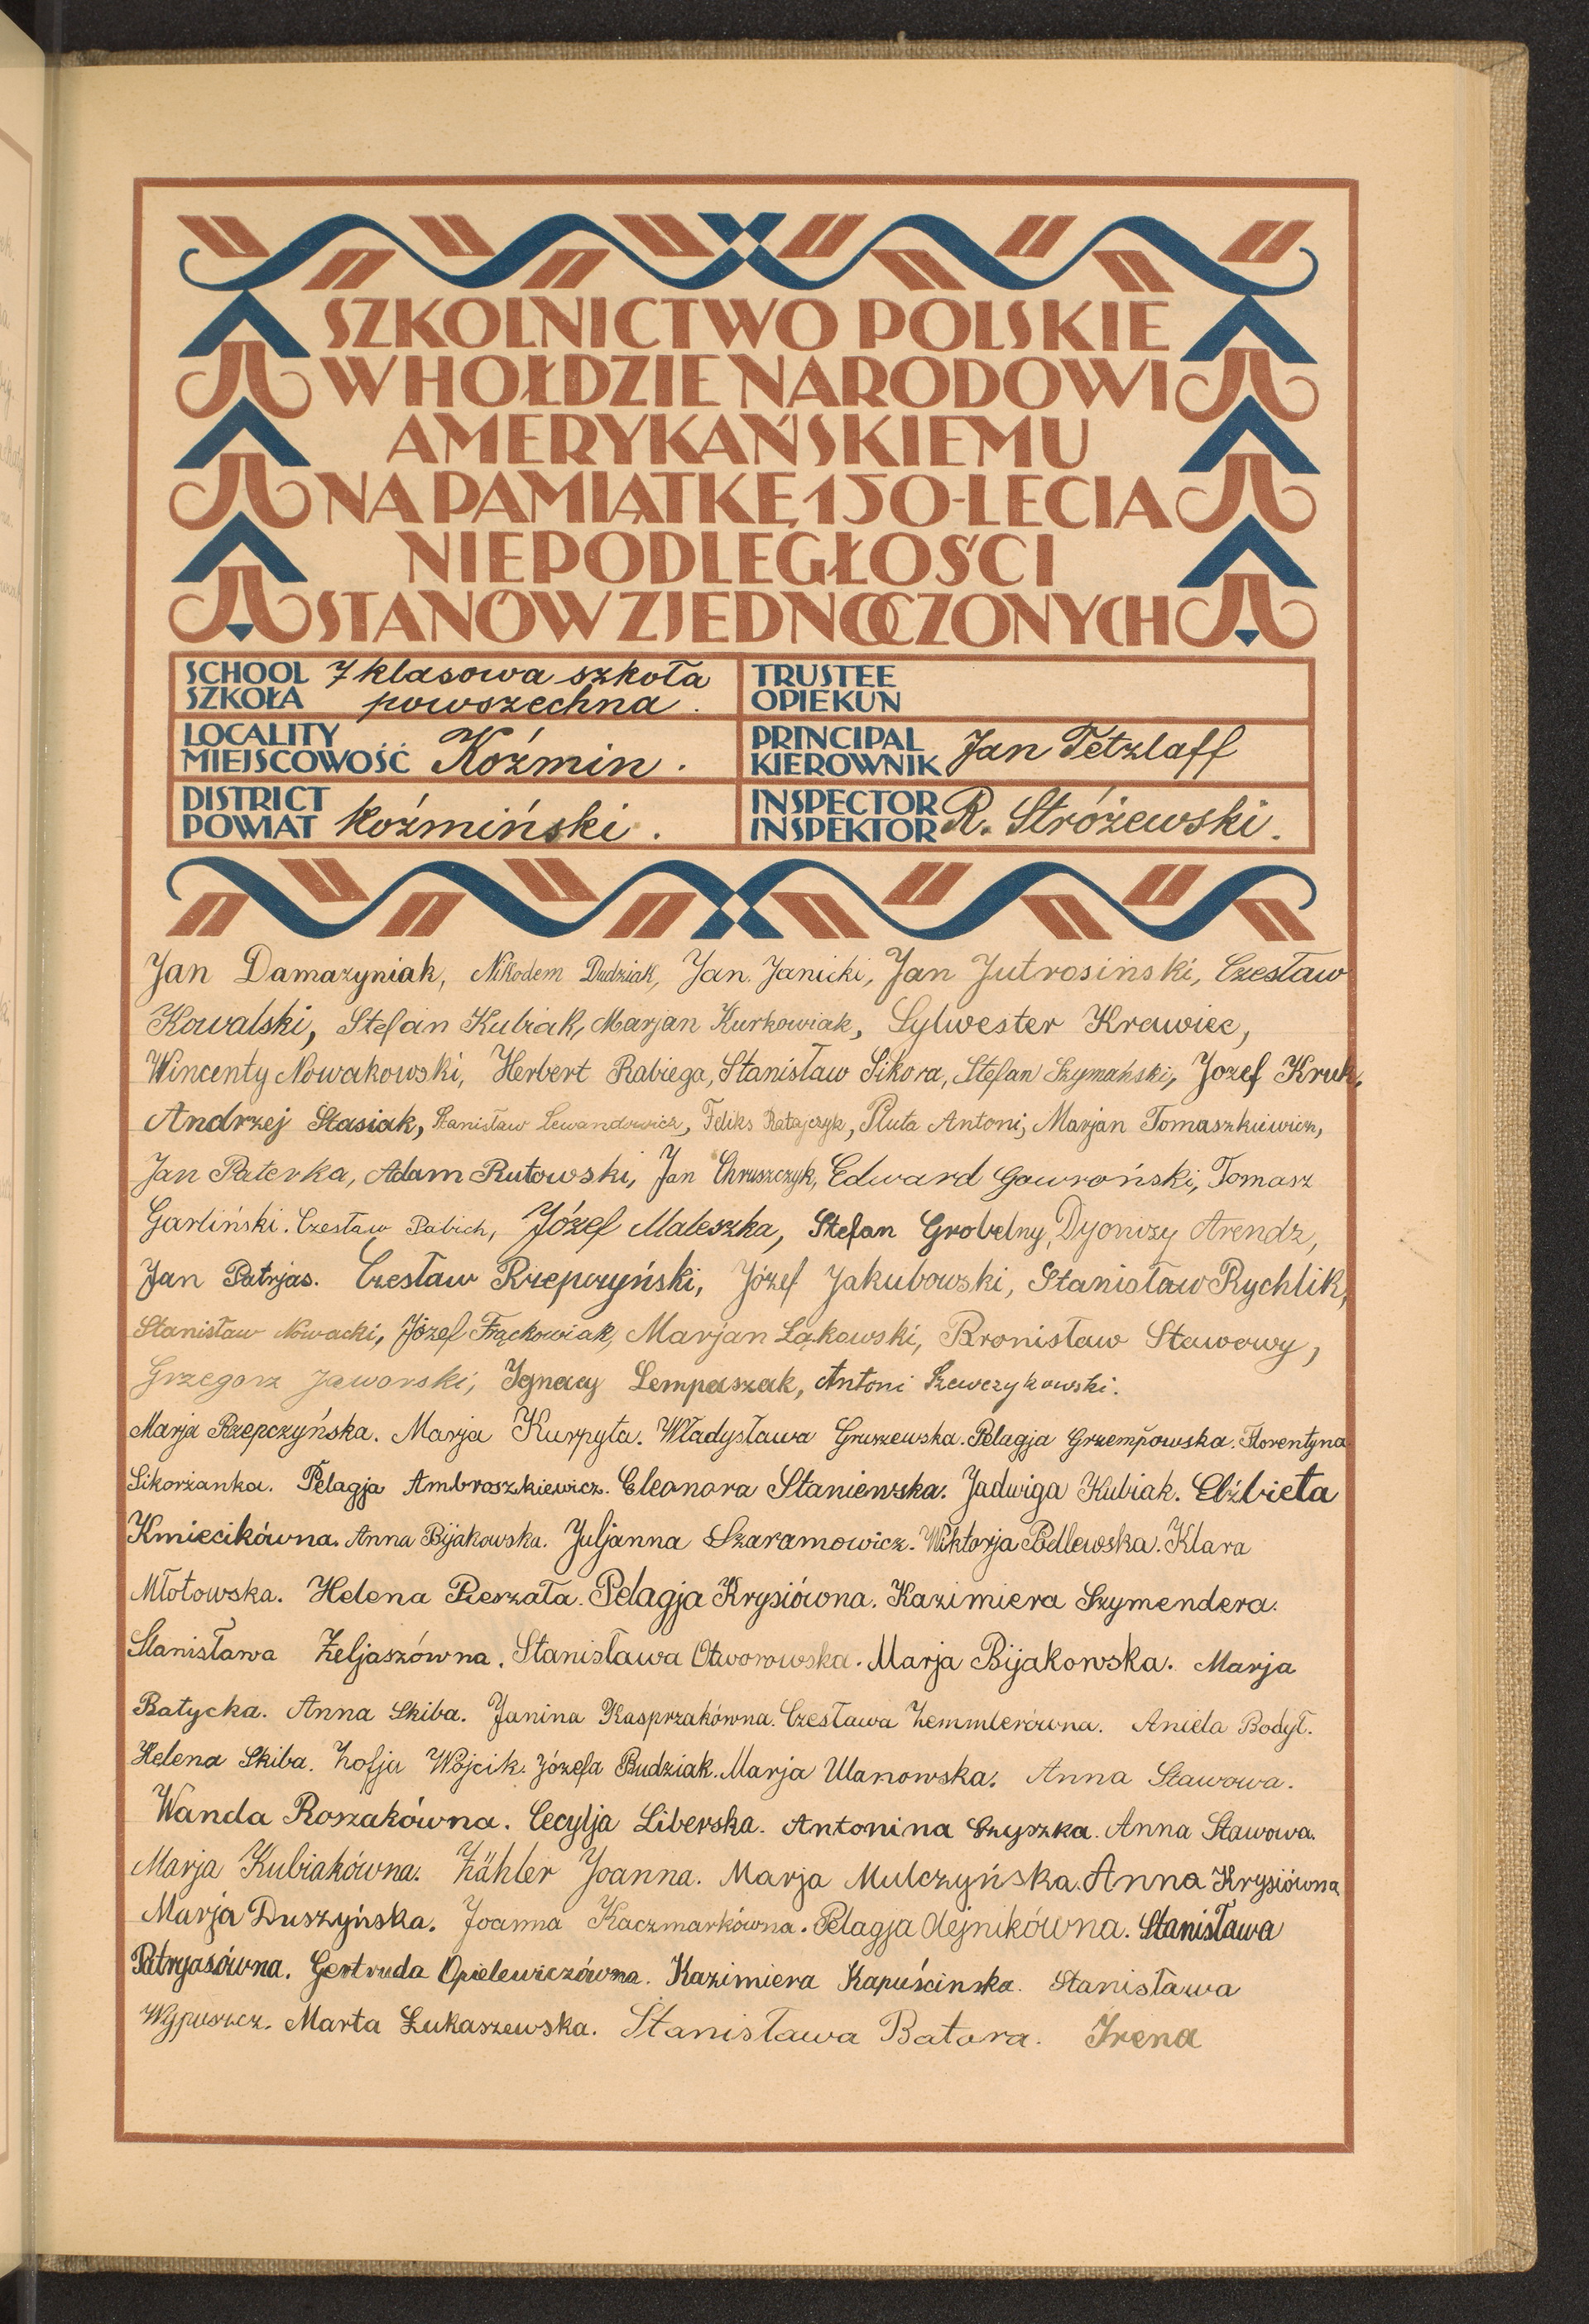 SZKOLNICTWO POLSKIE
W HOŁDZIE NARODOWI
AMERYKAŃSKIEMU
NA PAMIĄTKĘ 150-LECIA
NIEPODLEGŁOŚCI
STANÓW ZJEDNOCZONYCH
SCHOOL 7 klasowa szkoła
SZKOŁA powszechna.
TRUSTEE
OPIEKUN
LOCALITY
MIEJSCOWOŚĆ Koźmin.
PRINCIPAL
KIEROWNIK Jan Tetzlaff
DISTRICT
POWIAT koźmiński.
INSPECTOR
INSPEKTOR R. Stróżewski.
Jan Damazyniak, Nikodem Dudziak, Jan Janicki, Jan Jutrosiński, Czesław
Kowalski, Stefan Kubiak, Marjan Kurkowiak, Sylwester Krawiec,
Wincenty Nowakowski, Herbert Rabiega, Stanisław Sikora, Stefan Szymański, Jozef Kruk,
Andrzej Stasiak, Stanisław Lewandowicz, Feliks Ratajczyk, Pluta Antoni, Marjan Tomaszkiewicz,
Jan Paterka, Adam Rutowski, Jan Chruszczyk, Edward Gawroński, Tomasz
Garliński. Czesław Pabich, Józef Maleszka, Stefan Grobelny, Dyonizy Arendz,
Jan Patrjas. Czesław Rzepczyński, Józef Jakubowski, Stanisław Rychlik,
Stanisław Nowacki, Józef Frąckowiak, Marjan Łąkowski, Bronisław Stawowy,
Grzegorz Jaworski, Ignacy Lempaszak, Antoni Szewczykowski.
Marja Rzepczyńska. Marja Kurpyta. Władysława Gruszewska. Pelagja Grzempowska. Florentyna
Sikorzanka. Pelagja Ambroszkiewicz. Eleonora Staniewska. Jadwiga Kubiak. Elżbieta
Kmiecikówna. Anna Bijakowska. Juljanna Szaramowicz. Wiktorja Podlewska. Klara
Młotowska. Helena Pieszała. Pelagja Krysiówna. Kazimiera Szymendera.
Stanisława Zeljaszówna. Stanisława Otworowska. Marja Bijakowska. Marja
Batycka. Anna Skiba. Janina Kasprzakówna. Czesława Zemmlerówna. Aniela Bodył.
Helena Skiba. Zofja Wójcik. Józefa Budziak. Marja Ulanowska. Anna Stawowa.
Wanda Roszakówna. Cecylja Liberska. Antonina Czyszka. Anna Stawowa.
Marja Kubiakówna. Zähler Joanna. Marja Mulczyńska. Anna Krysiówna
Marja Duszyńska. Joanna Kaczmarkówna. Pelagja Olejnikówna. Stanisława
Patryasówna. Gertruda Opielewiczówna. Kazimiera Kapuścinska. Stanisława
Wypuszcz. Marta Łukaszewska. Stanisława Batora. Irena